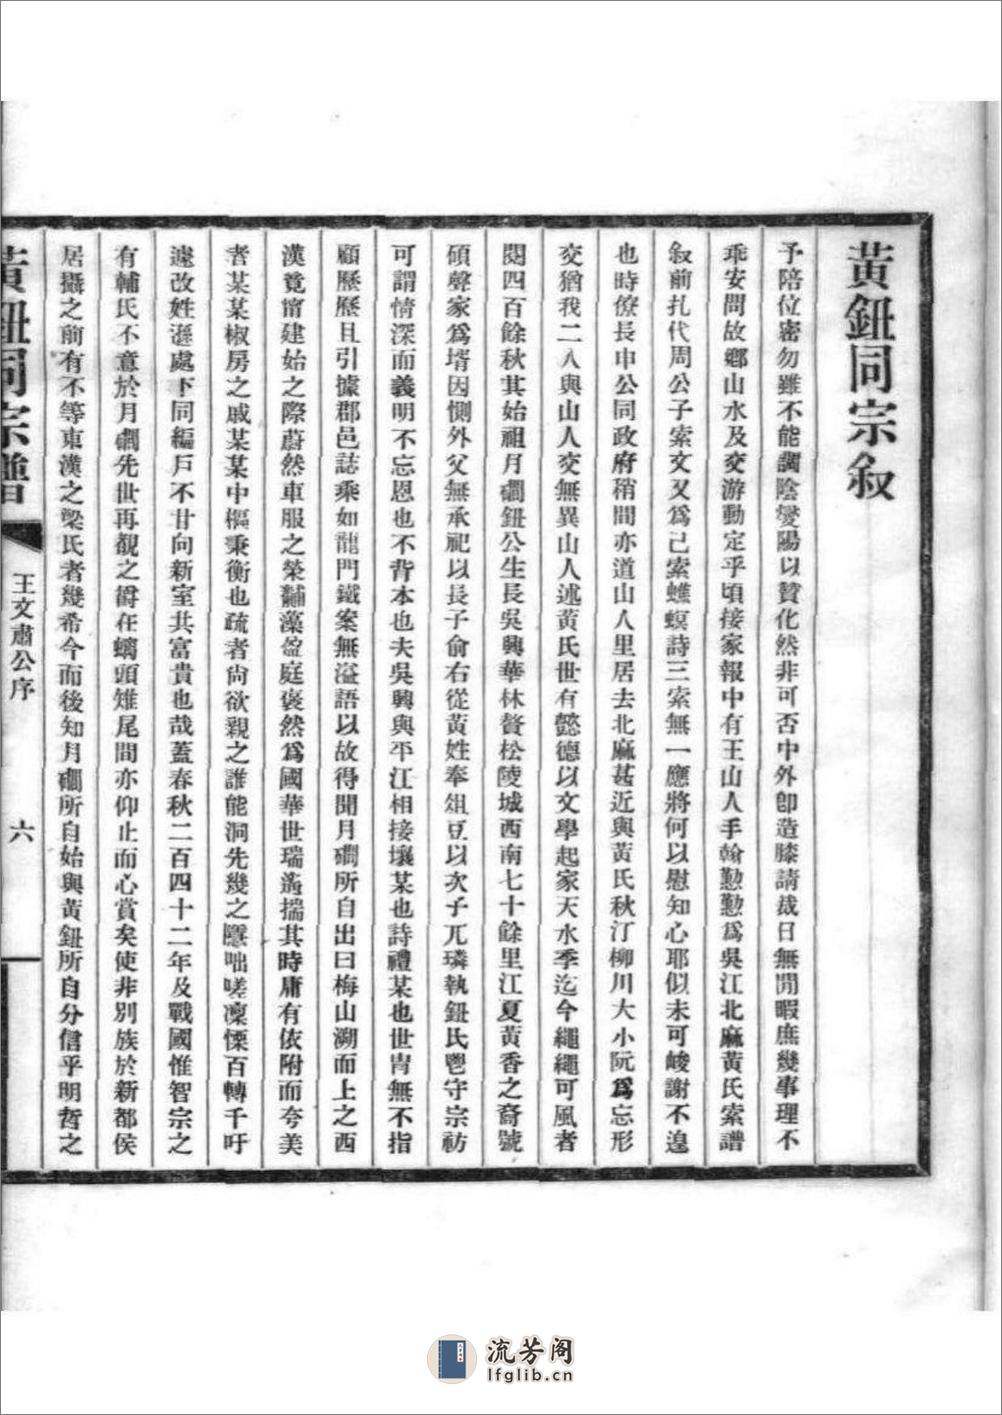 黃鈕同宗叙
予陪位密勿雖不能調陰燮陽以贊化然非可否中外卽造膝請裁日無閒暇庶幾事理不
乖安問故鄉山水及交游動定乎頃接家報中有王山人手翰懃懃爲吳江北麻黃氏索譜
叙前扎代周公子索文又爲己索蟭螟詩三索無一應將何以慰知心耶似未可峻謝不遑
也時僚長申公同政府稍間亦道山人里居去北麻甚近與黃氏秋汀柳川大小阮爲忘形
交猶我二人與山人交無異山人述黃氏世有懿德以文學起家天水季迄今繩繩可風者
閱四百餘秋其始祖月磵鈕公生長吳興華林贅松陵城西南七十餘里江夏黃香之裔號
碩聲家爲壻因惻外父無承祀以長子俞右從黃姓奉俎豆以次子兀璘執鈕氏鬯守宗祊
可謂情深而義明不忘恩也不背本也夫吳興與平江相接壤某也詩禮某也世冑無不指
顧歷歷且引據郡邑誌乘如龍門鐵案無溢語以故得聞月磵所自出曰梅山溯而上之西
漢竟甯建始之際蔚然車服之榮黼藻盈庭褒然爲國華世瑞遙揣其時庸有依附而夸美
者某某椒房之戚某某中樞秉衡也疏者尙欲親之誰能洞先幾之隱咄嗟凜慄百轉千吁
遽改姓遜處下同編戶不甘向新室共富貴也哉蓋春秋二百四十二年及戰國惟智宗之
有輔氏不意於月磵先世再觀之爵在螭頭雉尾間亦仰止而心賞矣使非別族於新都侯
居攝之前有不等東漢之梁氏者幾希今而後知月磵所自始與黃鈕所自分信乎明哲之
黃鈕同宗譜
王文肅公序
六
流芳阁
lfglib.cn